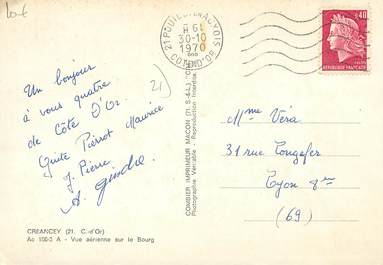 21 POUILLY-EN-AUXOIS
H
30-10
1970
COTE-D'OR
0,40
REPUBLIQUE FRANCAISE
21
Un bonjour
à vous quatre
de Côte D'Or.
Pierrot Maurice
J. Pierre.
A.
Mme Véra
31 rue
Lyon 8e
(69)
COMBIER IMPRIMEUR MACON (71. S.-&-L.)
Photographie Véritable - Reproduction Interdite
CREANCEY (21. C.-d'Or)
Ac 100-3 A - Vue aérienne sur le Bourg